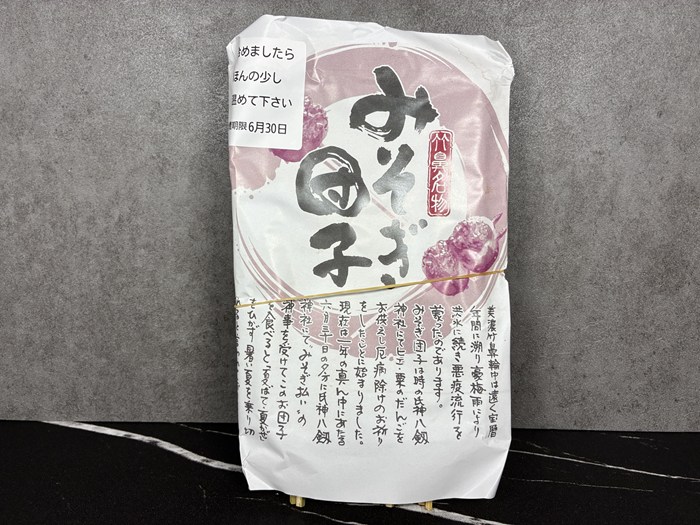 冷めましたら
ほんの少し
温めて下さい
期限6月30日
みそぎ
団子
竹鼻名物
美濃竹鼻輪中は遠く宝暦
年間に溯り豪梅雨により
洪水に続き悪疫流行を
蒙ったのであります。
みそぎ団子は時の氏神八剱
神社にてヒエ・粟のだんごを
お供えし厄病除けのお祈り
をしたことに始まりました。
現在は一年の真ん中にあたる
六月三十日の夕方に氏神八剱
神社にてみそぎ払いの
神事を受けてこのお団子
を食べると「夏ばて」「夏かぜ」
をひかず、暑い夏を乗り切